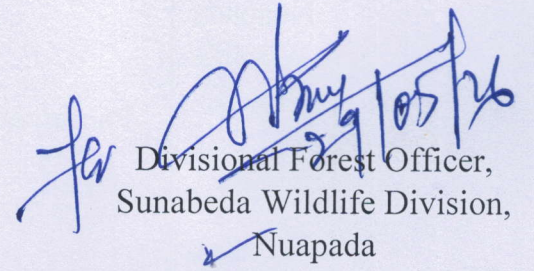 29/05/26
for
Divisional Forest Officer,
Sunabeda Wildlife Division,
Nuapada